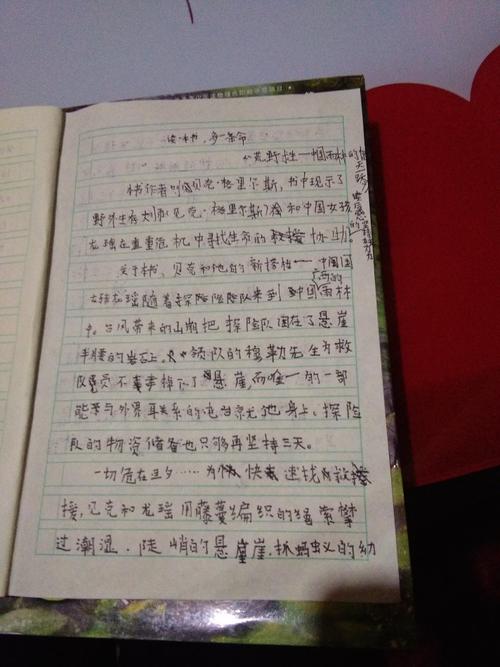 读一本书,多一条命
《荒野求生—惘雨林的惊天一跃》
本书作者叫贝克·格里尔斯,书中现示了
野外生存大师贝克·格里尔斯
和中国女孩
龙瑶在重重危机中寻找生命的
协助
关于本书,贝克和他的新搭档——中国
龙瑶随着探险队来到中国
雨林
中。台风带来的山
把探险队困在了悬崖
半腰的岩石上。领队的穆勒先生为救
队员不幸掉下了悬崖,而唯一的一部
能够与外界
系的电台
他身上。探险
队的物资储备也只够再坚持三天。
一切危在旦夕……为
快速找
救
援,贝克和龙瑶用藤蔓编织的绳索攀
过潮湿、陡峭的悬崖,抓蚂蚁的幼